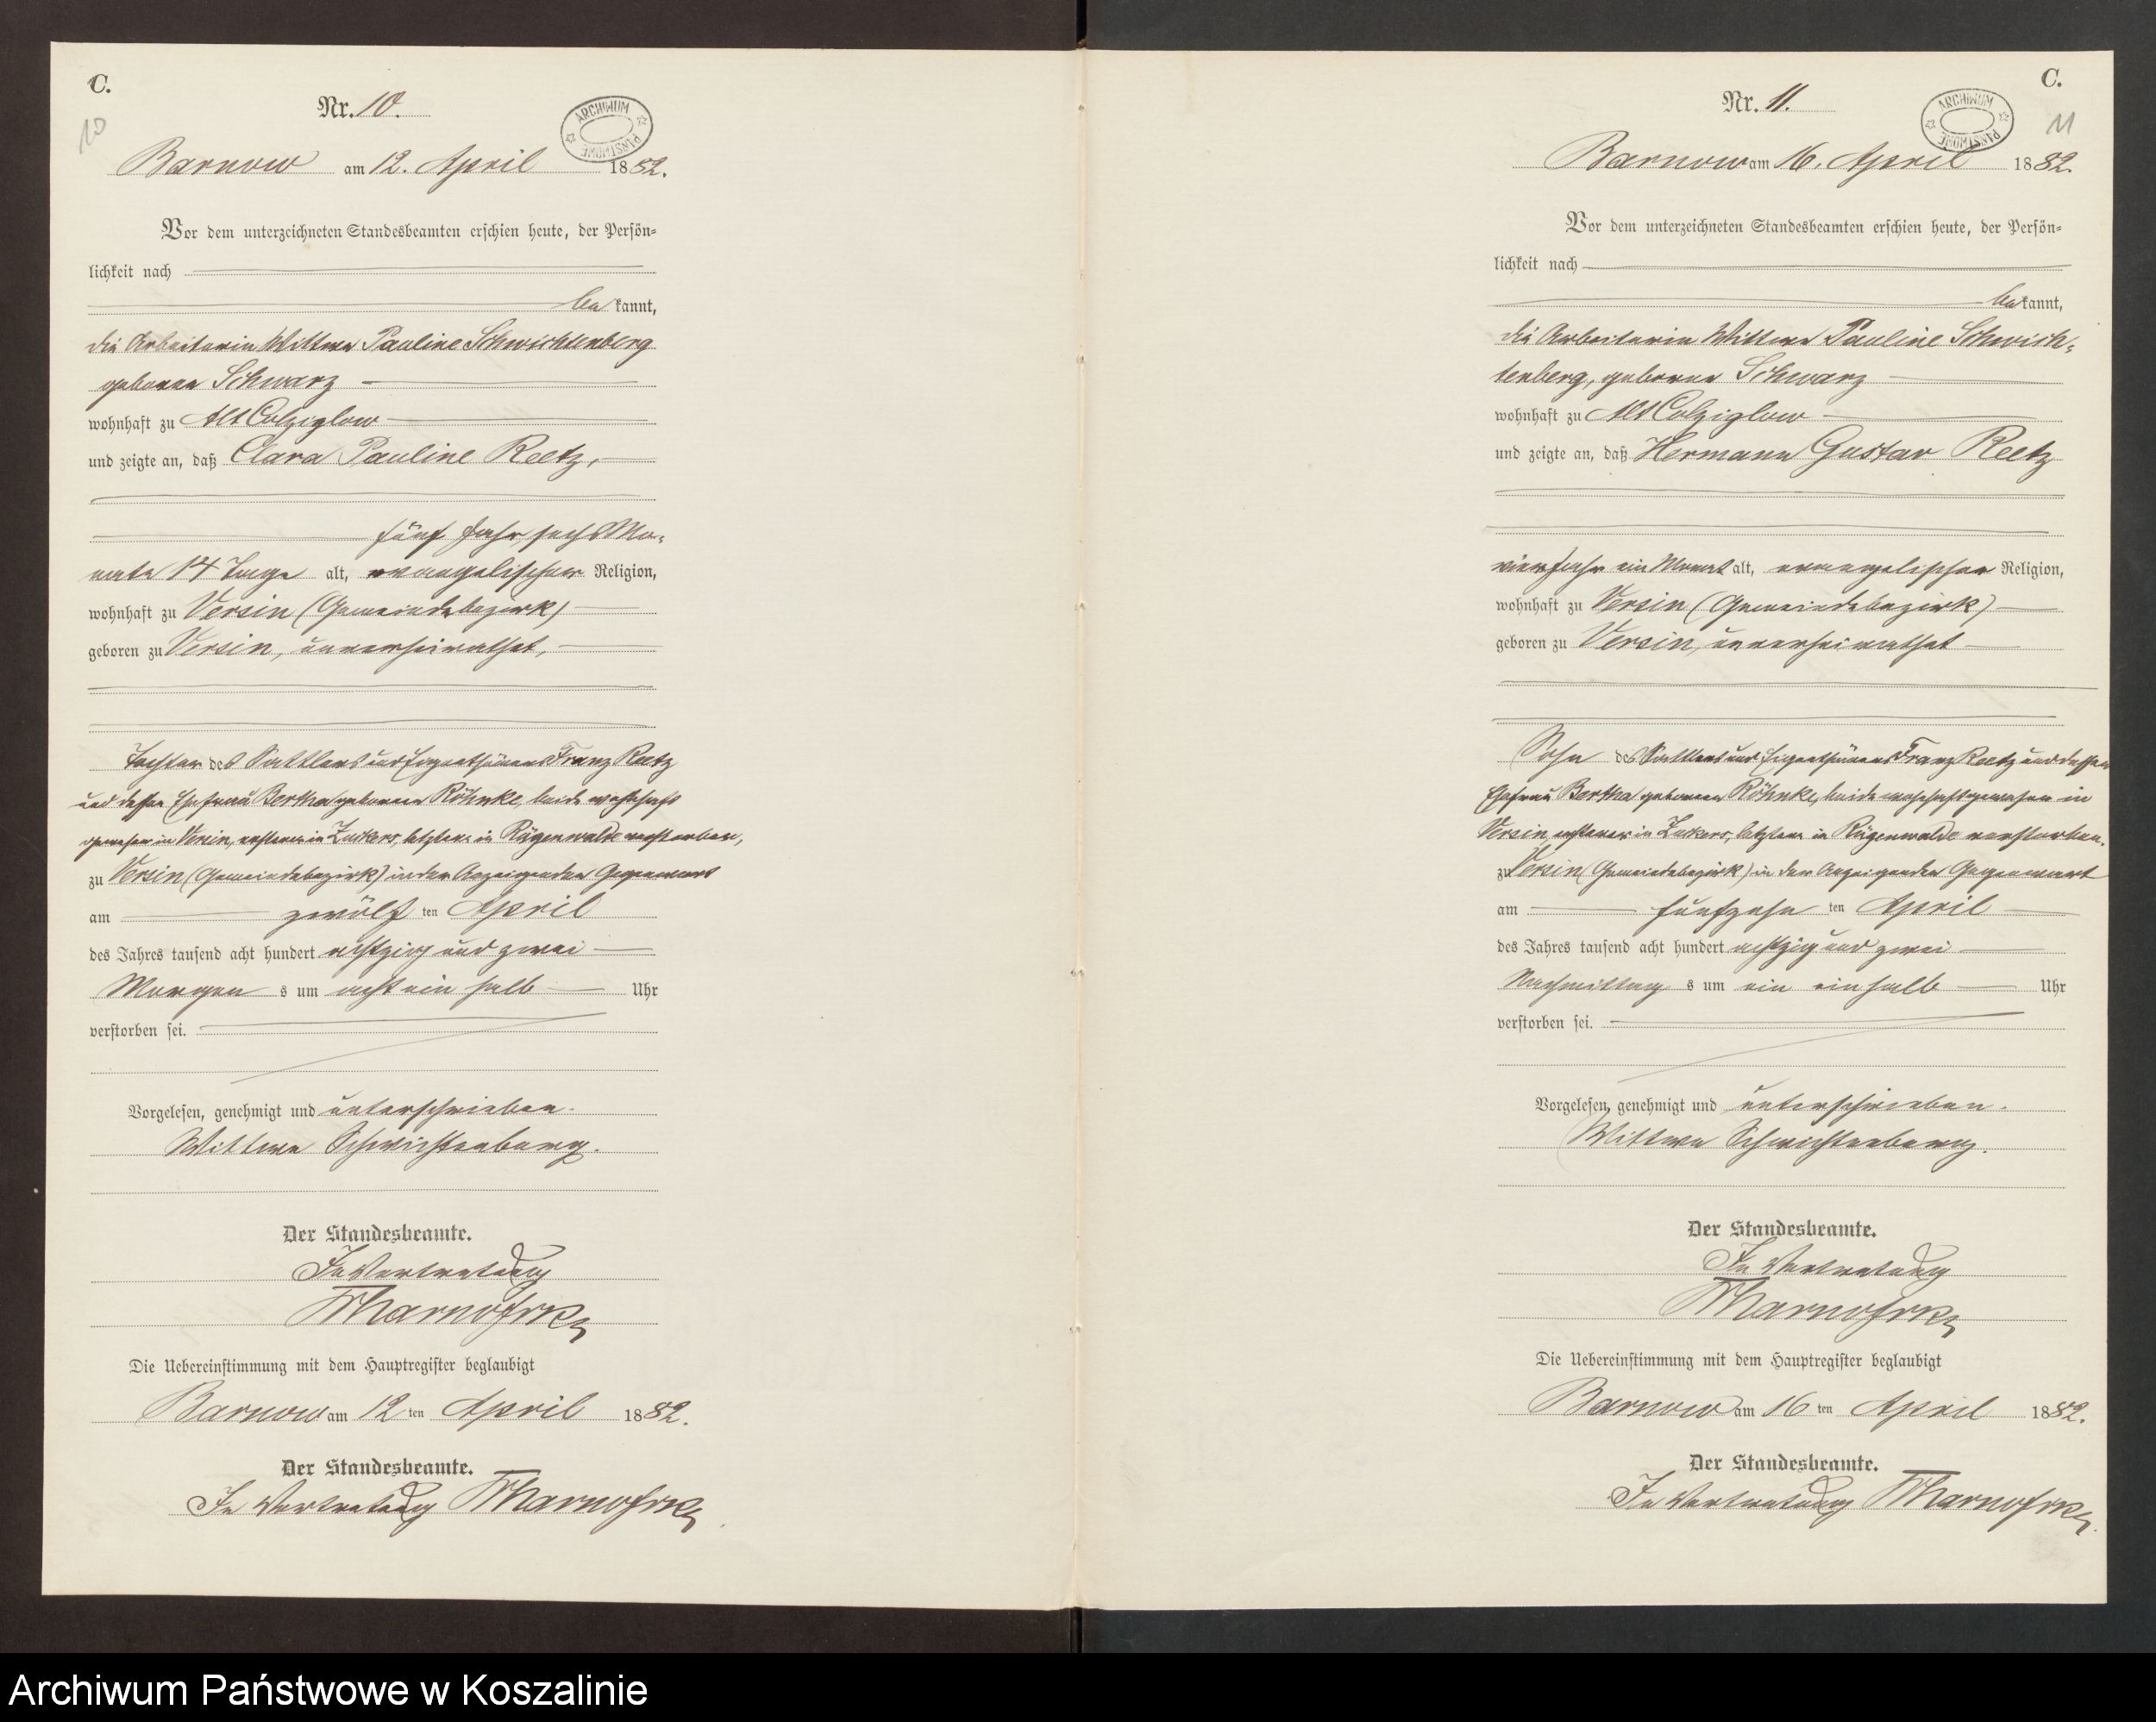 C.
10
Nr. 10.
ARCHIWUM PAŃSTWOWE
Barnow am 12. April 1882.
Vor dem unterzeichneten Standesbeamten erschien heute, der Persön-
lichkeit nach
bekannt,
die Arbeiterin Wittwe Pauline Schwichtenberg
geborene Schwarz
wohnhaft zu Alt Colziglow
und zeigte an, daß Clara Pauline Reetz,
fünf Jahr sechs Mo-
nate 14 Tage alt, evangelischer Religion,
wohnhaft zu Versin (Gemeindebezirk)
geboren zu Versin, unverheirathet,
Tochter des Sattlers und Eigenthümers Franz Reetz
und dessen Ehefrau Bertha geborenen Röhnke, beide wohnhaft
gewesen in Versin, ersterer in Zuckers, letztere in Rügenwalde verstorben,
zu Versin (Gemeindebezirk) in der Anzeigenden Gegenwart
am zwölf ten April
des Jahres tausend acht hundert achtzig und zwei
Morgen s um acht ein halb Uhr
verstorben sei.
Vorgelesen, genehmigt und unterschrieben.
Wittwe Schwichtenberg.
Der Standesbeamte.
In Vertretung
Die Uebereinstimmung mit dem Hauptregister beglaubigt
Barnow am 12 ten April 1882.
Der Standesbeamte.
In Vertretung
C.
11
Nr. 11.
ARCHIWUM PAŃSTWOWE
Barnow am 16. April 1882.
Vor dem unterzeichneten Standesbeamten erschien heute, der Persön-
lichkeit nach
bekannt,
die Arbeiterin Wittwe Pauline Schwich-
tenberg, geborene Schwarz
wohnhaft zu Alt Colziglow
und zeigte an, daß Hermann Gustav Reetz
vier Jahr ein Monat alt, evangelischer Religion,
wohnhaft zu Versin (Gemeindebezirk)
geboren zu Versin, unverheirathet
Sohn des Sattlers und Eigenthümers Franz Reetz und dessen
Ehefrau Bertha geborenen Röhnke, beide wohnhaft gewesen in
Versin, ersterer in Zuckers, letztere in Rügenwalde verstorben.
zu Versin (Gemeindebezirk) in der Anzeigenden Gegenwart
am fünfzehn ten April
des Jahres tausend acht hundert achtzig und zwei
Nachmittag s um ein einhalb Uhr
verstorben sei.
Vorgelesen, genehmigt und unterschrieben.
Wittwe Schwichtenberg.
Der Standesbeamte.
In Vertretung
Die Uebereinstimmung mit dem Hauptregister beglaubigt
Barnow am 16 ten April 1882.
Der Standesbeamte.
In Vertretung
Archiwum Państwowe w Koszalinie